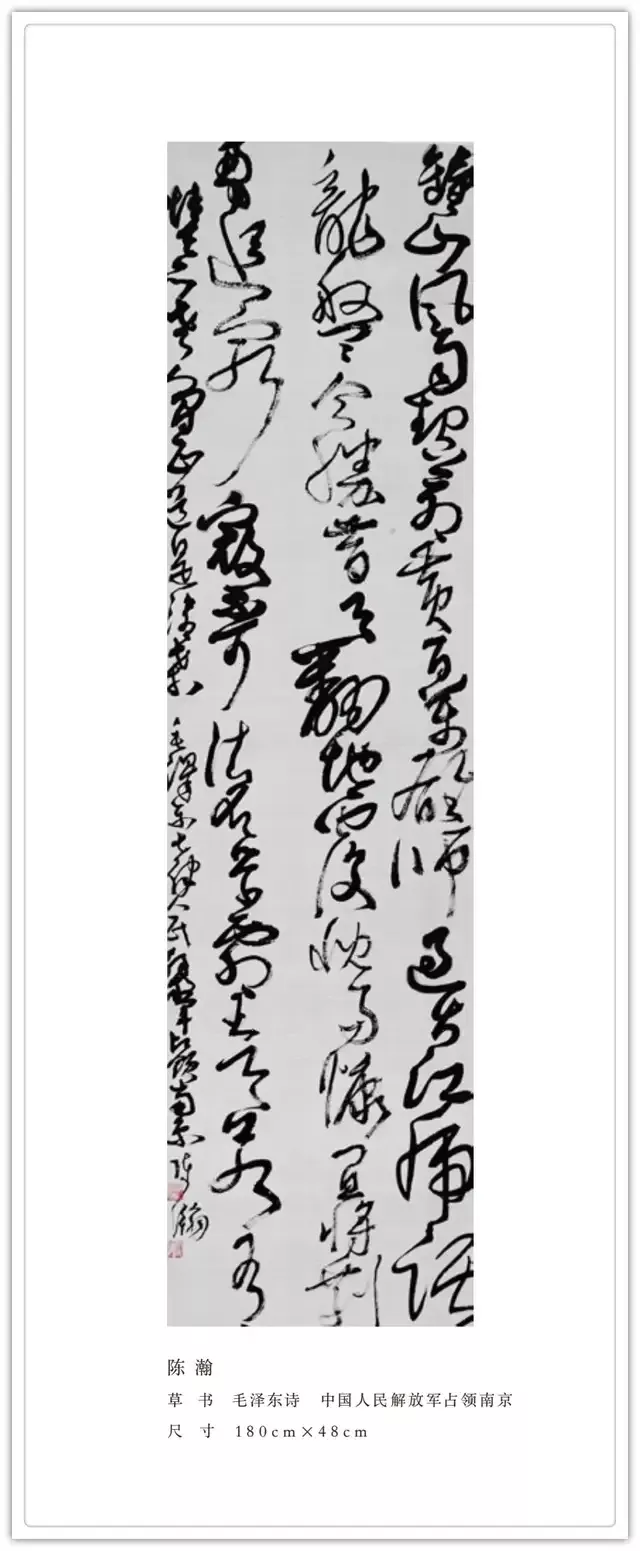 鍾山風雨起蒼黃百萬雄師過大江虎踞
龍盤今勝昔天翻地覆慨而慷宜將剩
勇追窮寇不可沽名學霸王天若有
情天亦老人間正道是滄桑 毛澤東七律人民解放軍占領南京 陳瀚
陈瀚
草书 毛泽东诗 中国人民解放军占领南京
尺寸 180cm×48cm